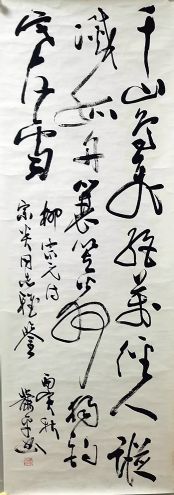 千山鳥飛絕萬徑人蹤
滅孤舟蓑笠翁獨釣
寒江雪
柳宗元诗
同志雅鉴
丙寅秋